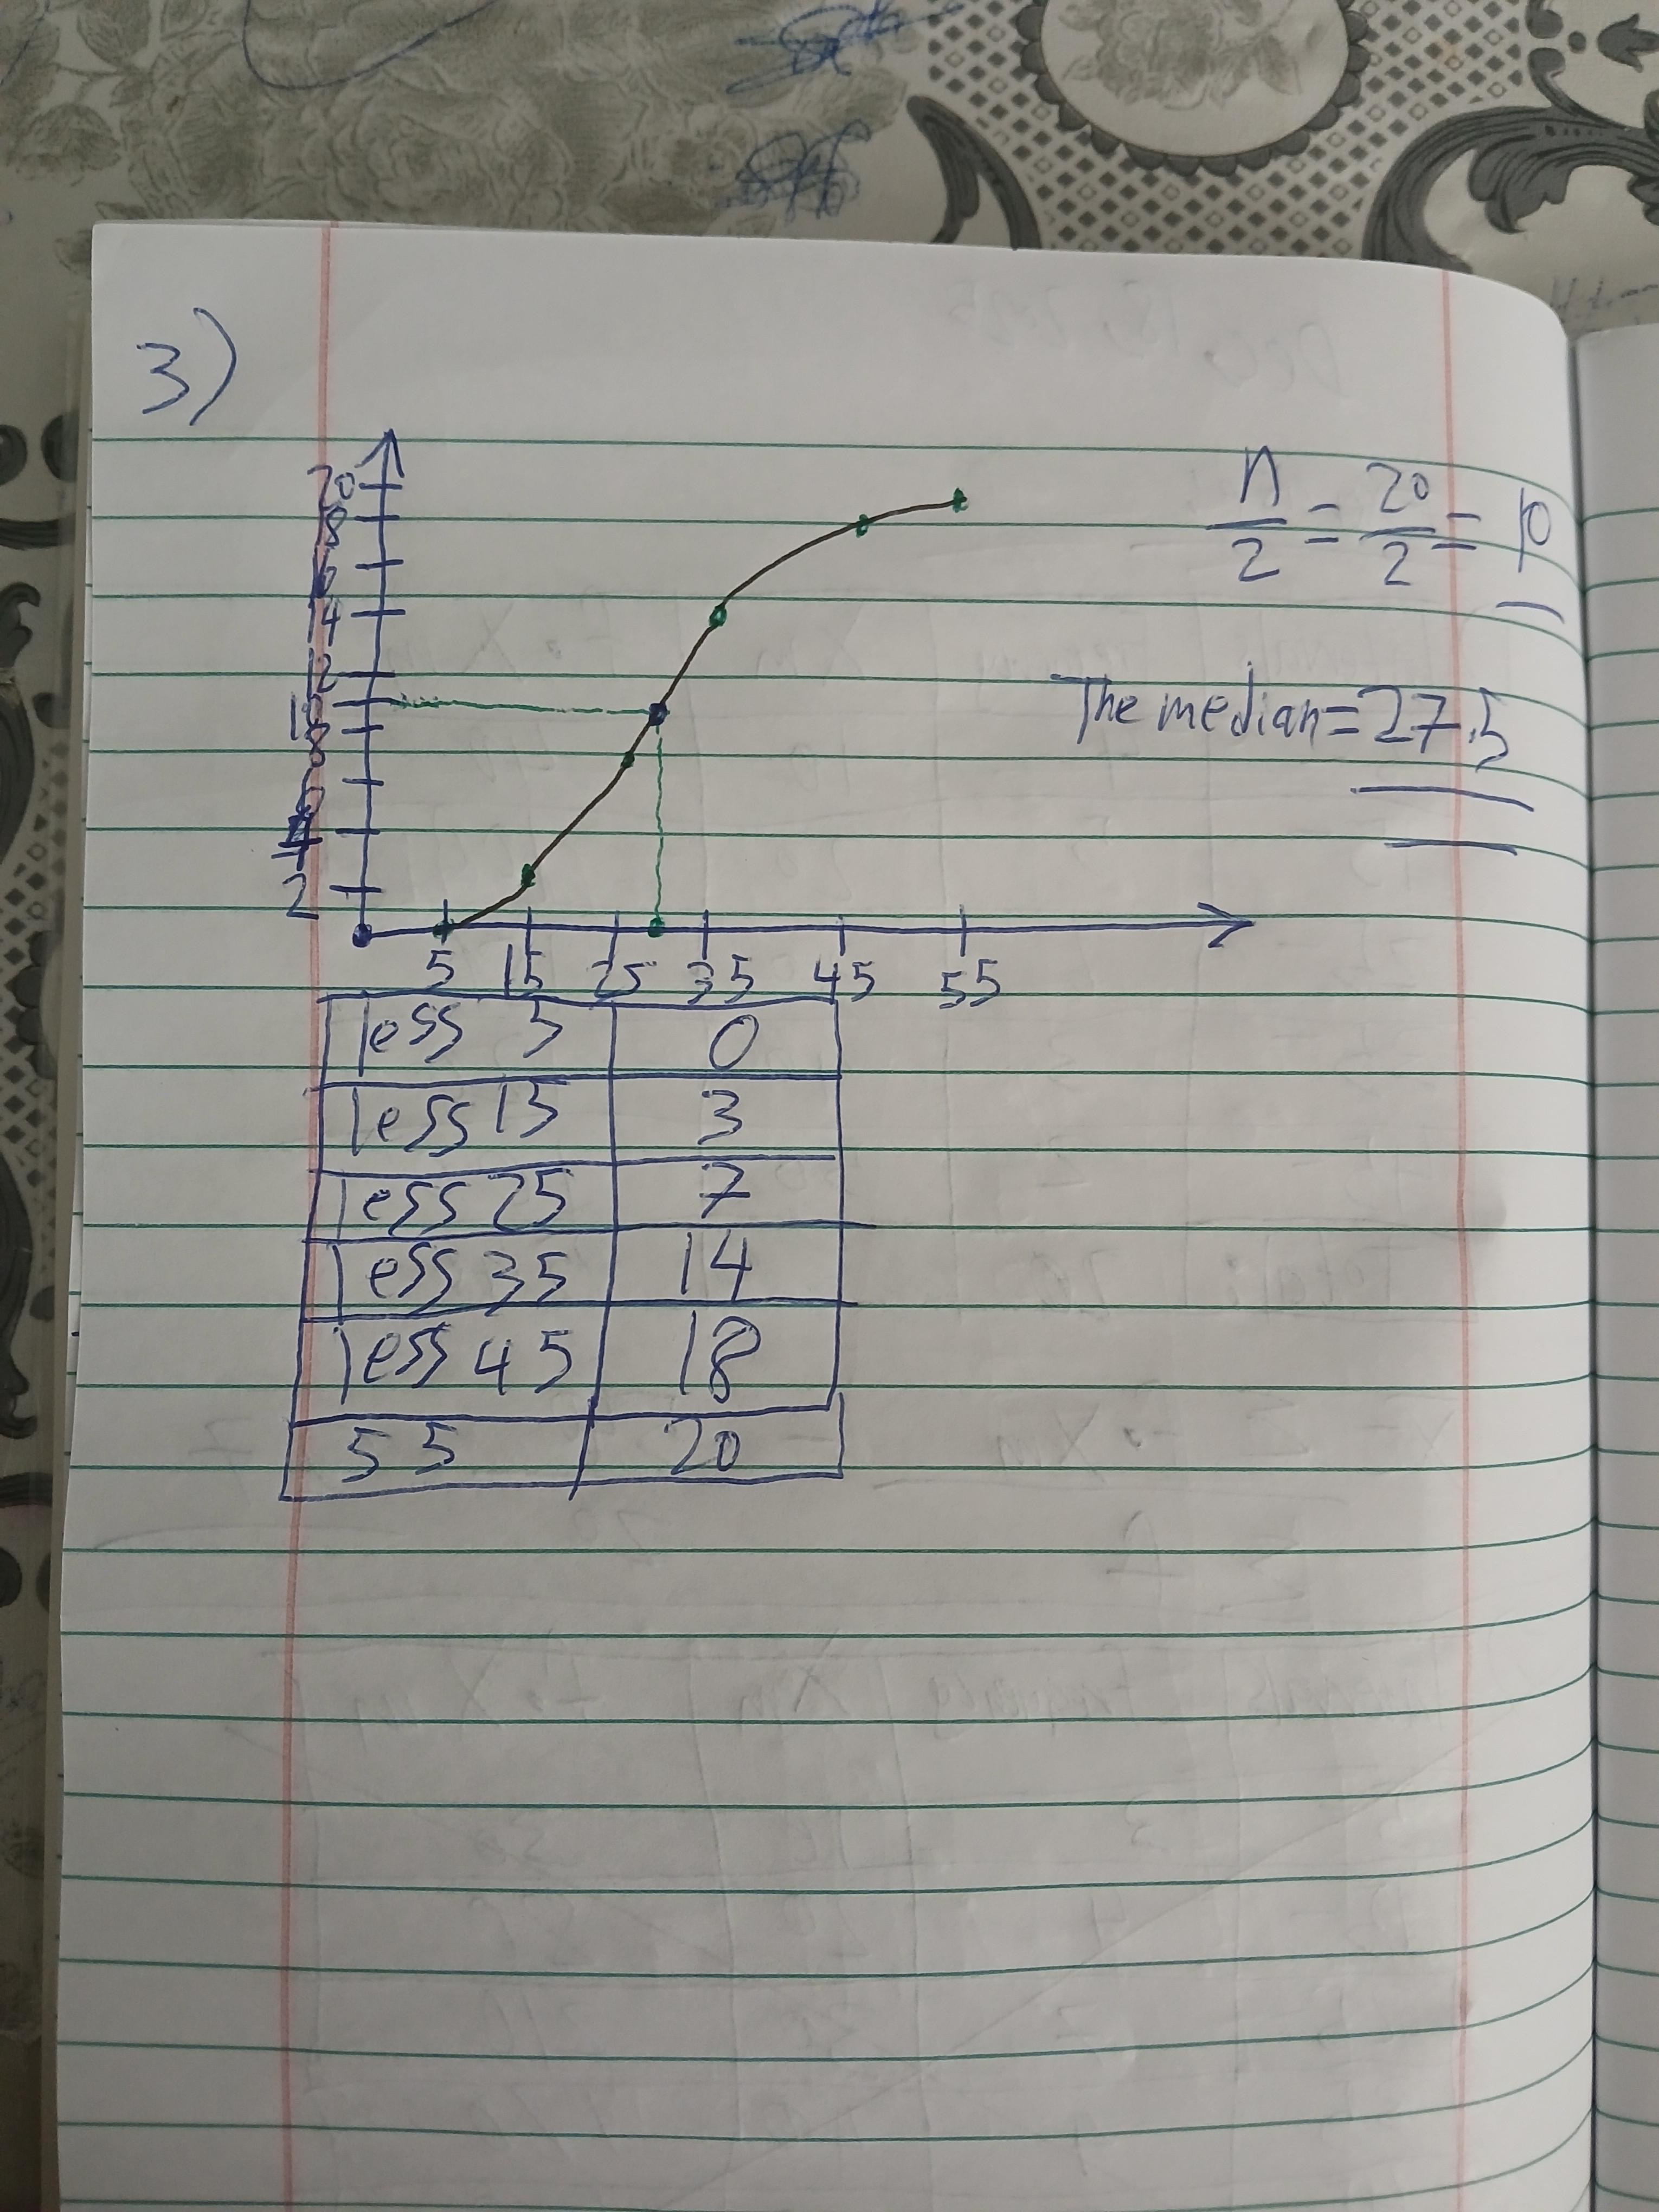 3)
20
18
16
14
12
10
8
6
4
2
n/2 = 20/2 = 10
The median = 27.5
5 15 25 35 45 55
less 5 0
less 15 3
less 25 7
less 35 14
less 45 18
55 20